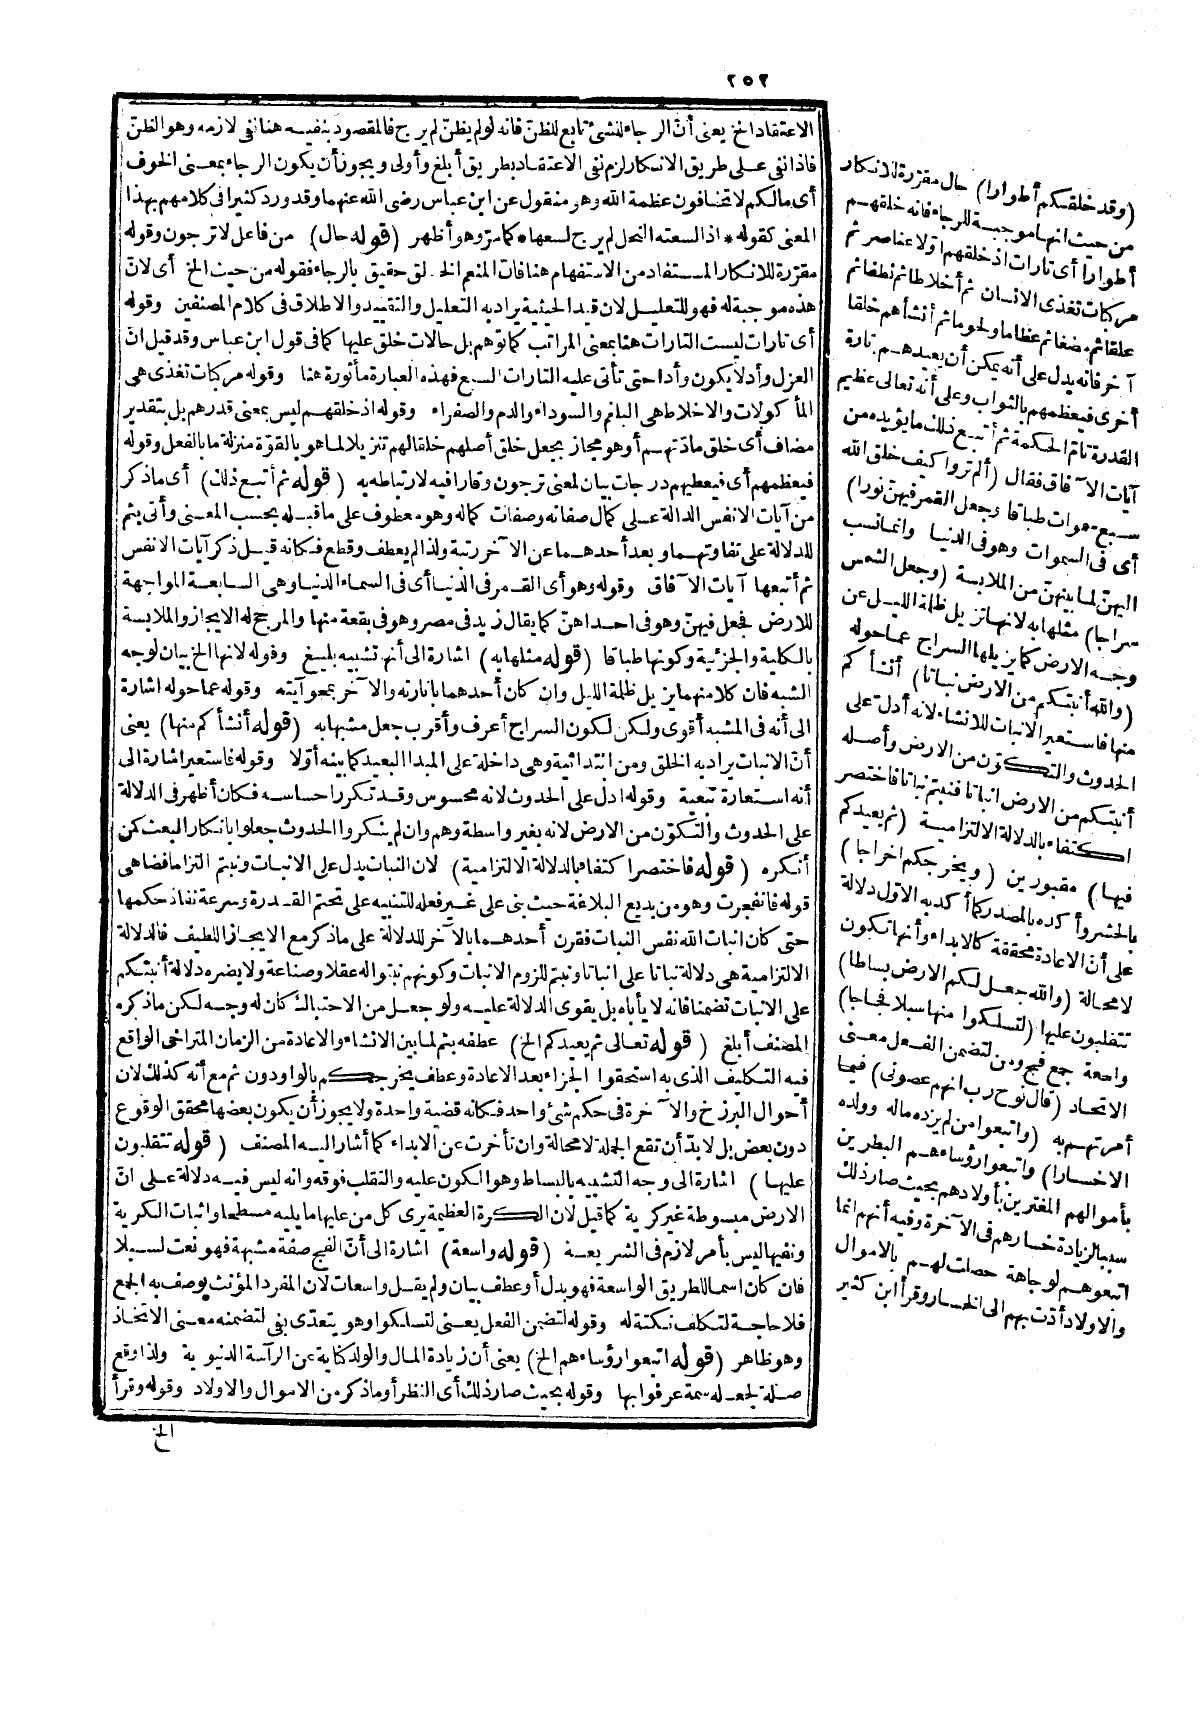 ٢٥٢
الاعتقاد الخ يعنى أنّ الرجاء للشئ تابع للظنّ فانه لو لم يظنّ لم يرج فالمقصود بنفيه هنا نفى لازمه وهو الظنّ
فاذا نفى على طريق الانكار لزم نفى الاعتقاد بطريق أبلغ وأولى ويجوز أن يكون الرجاء بمعنى الخوف
أى مالكم لا تخافون عظمة الله وهو منقول عن ابن عباس رضى الله عنهما وقد ورد كثيرا فى كلامهم بهذا
المعنى كقوله * اذا لسعته النحل لم يرج لسعها * كما مرّ وهو أظهر (قوله حال) من فاعل لا ترجون وقوله
مقرّرة للانكار المستفاد من الاستفهام هنا فات المنعم الخالق حقيق بالرجاء فقوله من حيث الخ أى لانّ
هذه موجبة له فهو للتعليل لان قيد الحيثية يراد به التعليل والتقييد والاطلاق فى كلام المصنفين وقوله
أى تارات ليست التارات هنا بمعنى المراتب كما توهم بل حالات خلق عليها كما فى قول ابن عباس وقد قيل انّ
العزل وأد لا يكون وأدا حتى تأتى عليه التارات السبع فهذه العبارة مأثورة هنا وقوله مركبات تغذى هى
المأكولات والاخلاط هى البلغم والسوداء والدم والصفراء وقوله اذ خلقهم ليس بمعنى قدرهم بل بتقدير
مضاف أى خلق مادّتهم أو هو مجاز بجعل خلق أصلهم خلقا لهم تنزيلا لما هو بالقوّة منزلة ما بالفعل وقوله
فيعظمهم أى فيعطيهم درجات بيان لمعنى ترجون وقارا فيه لارتباطه به (قوله ثم أتبع ذلك) أى ما ذكر
من آيات الانفس الدالة على كمال صفاته وصفات كماله وهو معطوف على ما قبله بحسب المعنى وأتى بثم
للدلالة على تفاوتهما وبعد أحدهما عن الآخر رتبة ولذا لم يعطف وقطع فكانه قيل ذكر آيات الانفس
ثم أتبعها آيات الآفاق وقوله وهو أى القمر فى الدنيا أى فى السماء الدنيا وهى السابعة المواجهة
للارض فجعل فيهنّ وهو فى احداهنّ كما يقال زيد فى مصر وهو فى بقعة منها والمرجح له الايجاز والملابسة
بالكلية والجزئية وكونها طباقا (قوله مثلها به) اشارة الى أنه تشبيه بليغ وقوله لانها الخ بيان لوجه
الشبه فان كلا منهما يزيل ظلمة الليل وان كان أحدهما بانارته والآخر بمحو آيته وقوله عما حوله اشارة
الى أنه فى المشبه أقوى ولكن لكون السراج أعرف وأقرب جعل مشبها به (قوله أنشأكم منها) يعنى
أنّ الانبات يراد به الخلق ومن ابتدائية وهى داخلة على المبدا البعيد كما بينه أوّلا وقوله فاستعير اشارة الى
أنه استعارة تبعية وقوله ادل على الحدوث لانه محسوس وقد تكرر احساسه فكان أظهر فى الدلالة
على الحدوث والتكوّن من الارض لانه بغير واسطة وهم وان لم ينكروا الحدوث جعلوا بانكار البعث كمن
أنكره (قوله فاختصر اكتفاء بالدلالة الالتزامية) لان النبات يدل على الانبات ونبتم التزاما فضاهى
قوله فانفجرت وهو من بديع البلاغة حيث بنى على غير فعله للتنبيه على تحتم القدرة وسرعة نفاذ حكمها
حتى كان انبات الله نفس النبات فقرن أحدهما بالآخر للدلالة على ما ذكر مع الايجاز اللطيف فالدلالة
الالتزامية هى دلالة نباتا على انباتا ونبتم للزوم الانبات وكونهم نبتوا له عقلا وصناعة ولا يضره دلالة أنبتكم
على الانبات تضمنا فانه لا يأباه بل يقوى الدلالة عليه ولو جعل من الاحتباك كان له وجه لكن ما ذكره
المصنف أبلغ (قوله تعالى ثم يعيدكم الخ) عطفه بثم لما بين الانشاء والاعادة من الزمان المتراخى الواقع
فيه التكليف الذى به استحقوا الجزاء بعد الاعادة وعطف يخرجكم بالواو دون ثم مع أنه كذلك لان
أحوال البرزخ والآخرة فى حكم شئ واحد فكانه قضية واحدة ولا يجوز أن يكون بعضها محقق الوقوع
دون بعض بل لا بدّ أن تقع الجملة لا محالة وان تأخرت عن الابداء كما أشار اليه المصنف (قوله تتقلبون
عليها) اشارة الى وجه التشبيه بالبساط وهو الكون عليه والتقلب فوقه وانه ليس فيه دلالة على انّ
الارض مبسوطة غير كرية كما قيل لان الكرة العظيمة يرى كل من عليها ما يليه مسطحا واثبات الكرية
ونفيها ليس بأمر لازم فى الشريعة (قوله واسعة) اشارة الى أنّ الفج صفة مشبهة فهو نعت لسبلا
فان كان اسما للطريق الواسعة فهو بدل أو عطف بيان ولم يقل واسعات لان المفرد المؤنث يوصف به الجمع
فلا حاجة لتكلف نكتة له وقوله لتضمن الفعل يعنى لتسلكوا وهو يتعدى بفى لتضمنه معنى الاتخاذ
وهو ظاهر (قوله اتبعوا رؤساءهم الخ) يعنى أن زيادة المال والولد كناية عن الرآسة الدنيوية ولذا وقع
صلة لجعله سمة عرفوا بها وقوله بحيث صار ذلك أى النظر أو ما ذكر من الاموال والاولاد وقوله وقرأ
الخ
(وقد خلقكم أطوارا) حال مقرّرة للانكار
من حيث انها موجبة للرجاء فانه خلقهم
أطوارا أى تارات اذ خلقهم أوّلا عناصر ثم
مركبات تغذى الانسان ثم أخلاطا ثم نطفا ثم
علقا ثم مضغا ثم عظاما ولحوما ثم أنشأهم خلقا
آخر فانه يدل على أنه يمكن أن يعيدهم تارة
أخرى فيعظمهم بالثواب وعلى أنه تعالى عظيم
القدرة تامّ الحكمة ثم أتبع ذلك ما يؤيده من
آيات الآفاق فقال (ألم تروا كيف خلق الله
سبع سموات طباقا وجعل القمر فيهنّ نورا)
أى فى السموات وهو فى الدنيا وانما نسب
اليهنّ لما بينهنّ من الملابسة (وجعل الشمس
سراجا) مثلها به لانها تزيل ظلمة الليل عن
وجه الارض كما يزيلها السراج عما حوله
(والله أنبتكم من الارض نباتا) أنشأكم
منها فاستعير الانبات للانشاء لانه أدل على
الحدوث والتكوّن من الارض وأصله
أنبتكم من الارض انباتا فنبتم نباتا فاختصر
اكتفاء بالدلالة الالتزامية (ثم يعيدكم
فيها) مقبورين (ويخرجكم اخراجا)
بالحشر وأكده بالمصدر كما أكد به الاوّل دلالة
على أنّ الاعادة محققة كالابداء وأنها تكون
لا محالة (والله جعل لكم الارض بساطا)
تتقلبون عليها (لتسلكوا منها سبلا فجاجا)
واسعة جمع فج ومن لتضمن الفعل معنى
الاتخاذ (قال نوح رب انهم عصونى) فيما
أمرتهم به (واتبعوا من لم يزده ماله وولده
الا خسارا) واتبعوا رؤساءهم البطرين
بأموالهم المغترين بأولادهم بحيث صار ذلك
سببا لزيادة خسارهم فى الآخرة وفيه أنهم انما
اتبعوهم لوجاهة حصلت لهم بالاموال
والاولاد أدّت بهم الى الخسار وقرأ ابن كثير